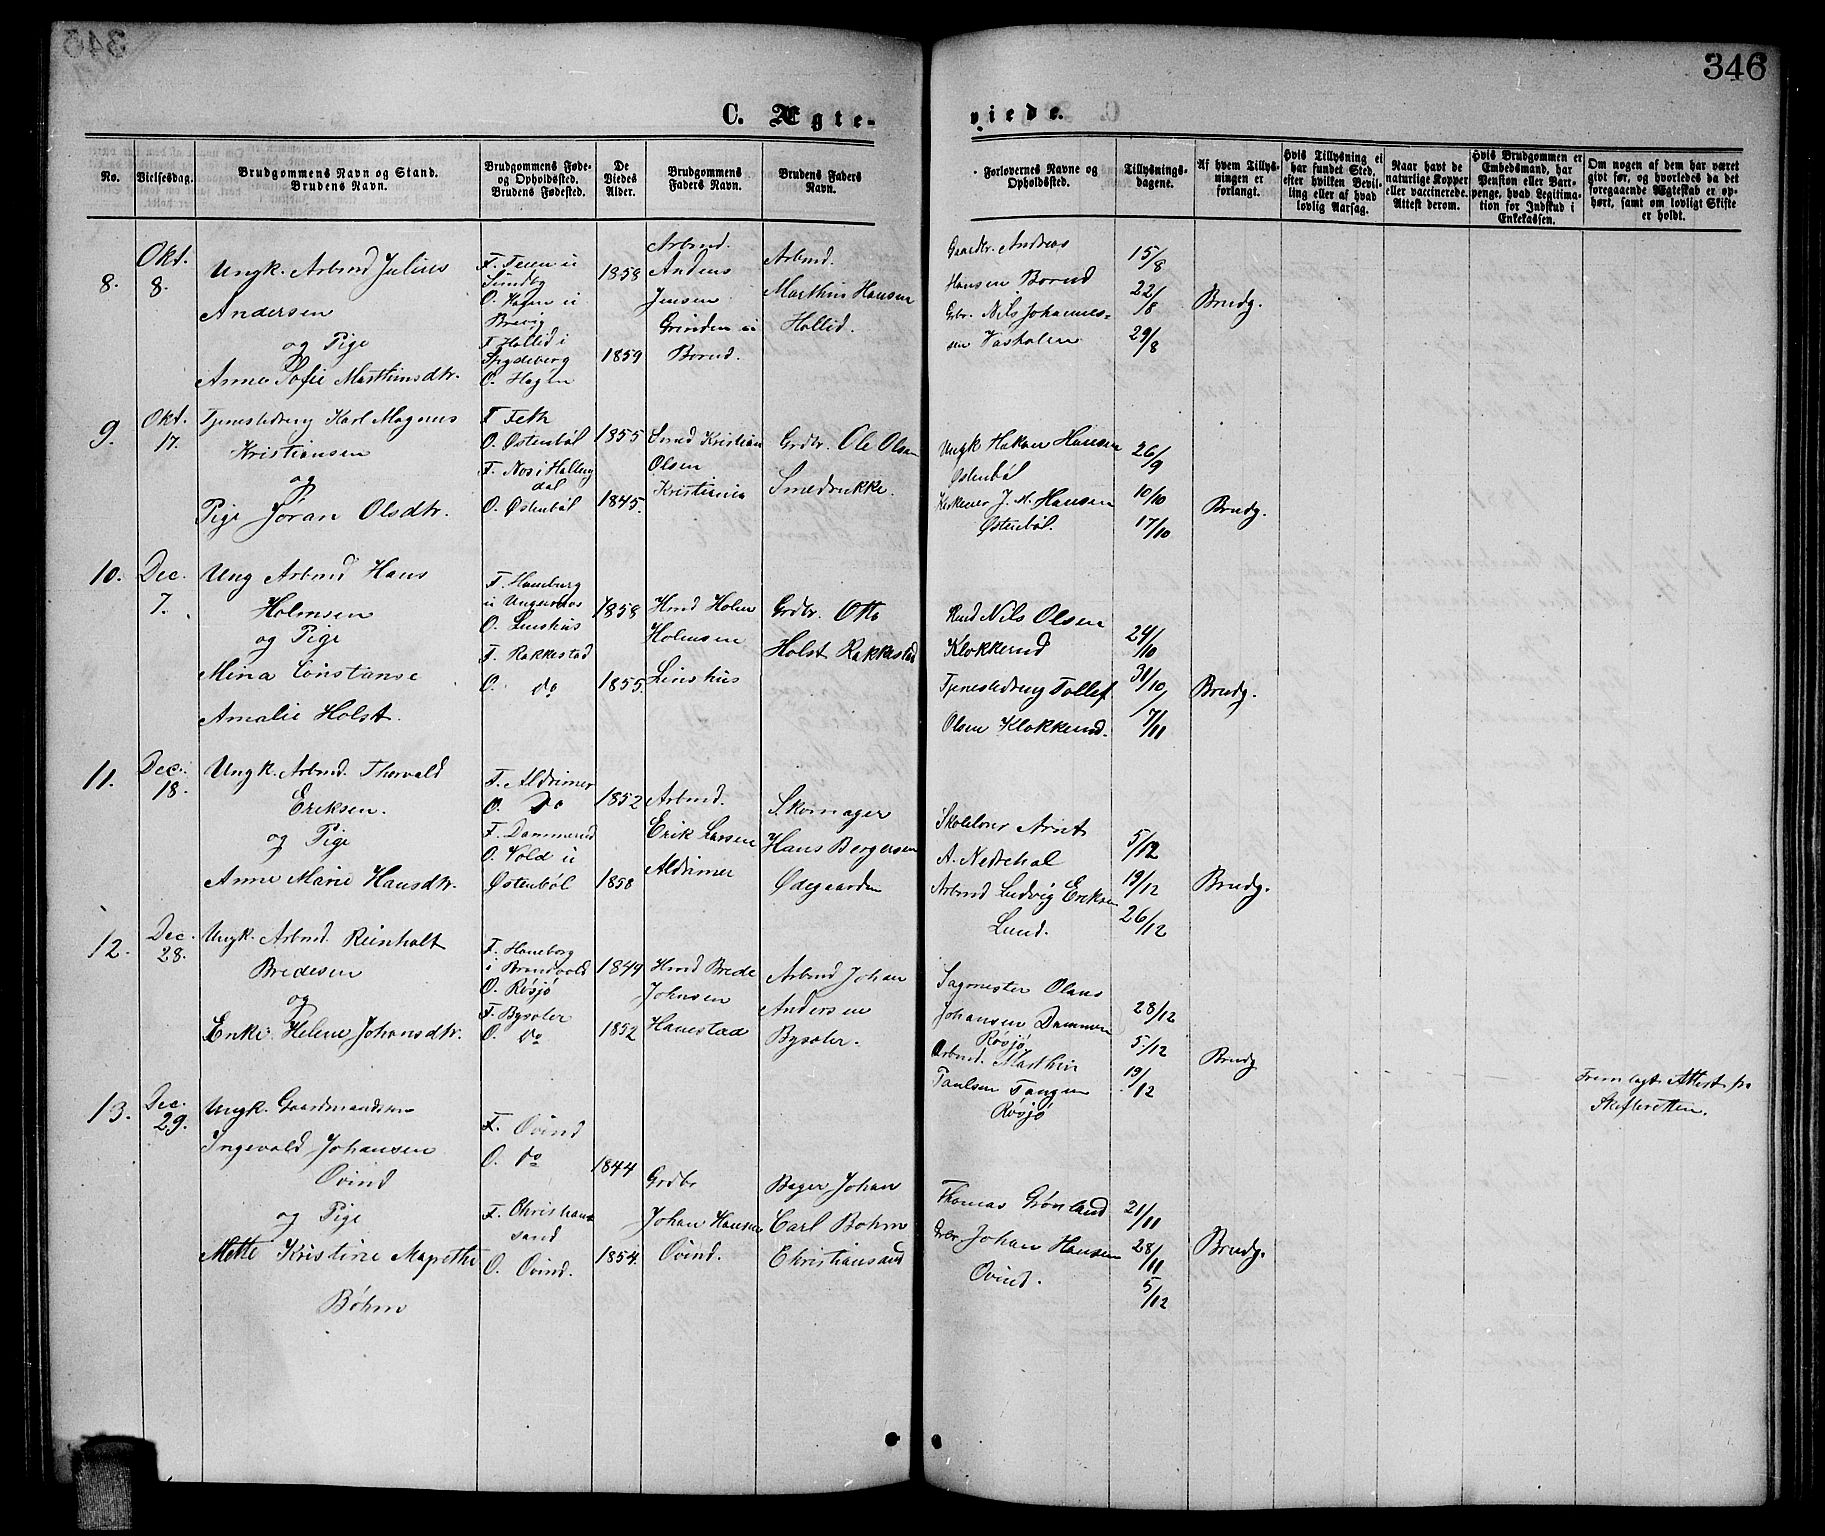 346
C. Ægte-
viede.
No.
Vielsesdag.
Brudgommens Navn og Stand.
Brudens Navn.
Brudgommens Føde-
og Opholdssted.
Brudens Fødested.
De
Viedes
Alder.
Brudgommens
Faders Navn.
Brudens Faders
Navn.
Forlovernes Navne og
Opholdssted.
Tillysnings-
dagene.
Af hvem Tillys-
ningen er
forlangt.
Hvis Tillysning ei
har fundet Sted,
efter hvilken Bevil-
ling eller af hvad
lovlig Aarsag.
Naar havt de
naturlige Kopper
eller vaccinerede.
Attest derom.
Hvis Brudgommen er
Embedsmand, har
Pension eller Vart-
penge, hvad Legitima-
tion for Indskud i
Enkekassen.
Om nogen af dem har været
givt før, og hvorledes da det
foregaaende Ægteskab er op-
hørt, samt om lovligt Skifte
er holdt.
8.
Okt.
8.
Ungk. Arbmd Julius
Andersen
og Pige
Anne Sofie Marthinsdtr.
Sundby
Brevig
F. Hollid i
Spydeberg
O. Hagen
1858
1859
Arbmd.
Anders
Jensen
Grinden u
Borud.
Arbmd.
Marthin Hansen
Hollid.
Gaardbr. Andreas
Hansen Borud
Grbr. Nils Johannes-
sen
15/8
22/8
29/8
Brudg.
9.
Okt.
17.
Tjenestedreng Karl Magnus
Kristiansen
og
Pige Jøran Olsdtr.
F. Feth
O. Østenbøl
F. Nos i Halling
dal
O. Østenbøl
1855
1845.
Smed Kristian
Olsen
Kristiania
Grdbr. Ole Olsen
Smedrukke.
Ungk. Hakon Hansen
Østenbøl
Kirkener J. M. Hansen
Østenbøl.
26/9
10/10
17/10
Brudg.
10.
Dec.
7.
Ung Arbmd Hans
Holmsen
og Pige
Mina Constanse
Amalie Holst.
F. Haneburg
O. Linshus
F. Rakkestad
O. do
1858
1855.
Hmd Holm
Holmsen
Linshus
Grdbr. Otto
Holst Rakkestad
Hmd Nils Olsen
Klokkerud
Tjenestedreng Tollef
Olsen Klokkerud.
24/10
31/10
7/11
Brudg.
11.
Dec.
18.
Ungk. Arbmd. Thorvald
Eriksen.
og Pige
Anne Marie Hansdtr.
F. Aldrimer
O. Do
F. Dammerud
O. Vold u
Østenbøl
1852
1858
Arbmd.
Erik Larsen
Aldrimer
Skomager
Hans Bergersen
Ødegaarden
Skolelærer Arnt
A. Nedrehol
Arbmd Ludvig Eriksen
Lund.
5/12
19/12
26/12
Brudg.
12.
Dec.
28.
Ungk. Arbmd. Reinholt
Bredesen
og
Enke Helene Johansdtr.
F. Haneborg
i Brandvold
O. Røsjø
F. Bysæter
O. do
1849
1852
Hmd Brede
Johnsen
Hanestad
Arbmd Johan
Andersen
Bysæter.
Sagmester Olaus
Johansen Dammen
Røsjø
Arbmd. Marthin
Paulsen Tangen
Røsjø
28/12
5/12
19/12
Brudg
Fremlagt Attest fra
Skifteretten.
13.
Dec.
29.
Ungk. Gaardmandssøn
Ingevald Johansen
Øvind
og Pige
Mette Kristine Magrethe
Bøhm
F. Øvind
O. do
F. Christians
sand
O. Øvind.
1844
1854.
Grdbr
Johan Hansen
Øvind.
Bager Johan
Carl Bøhm
Christiansand
Thomas Grønland
Grbr. Johan Hansen
Øvind.
21/11
28/11
5/12
Brudg.